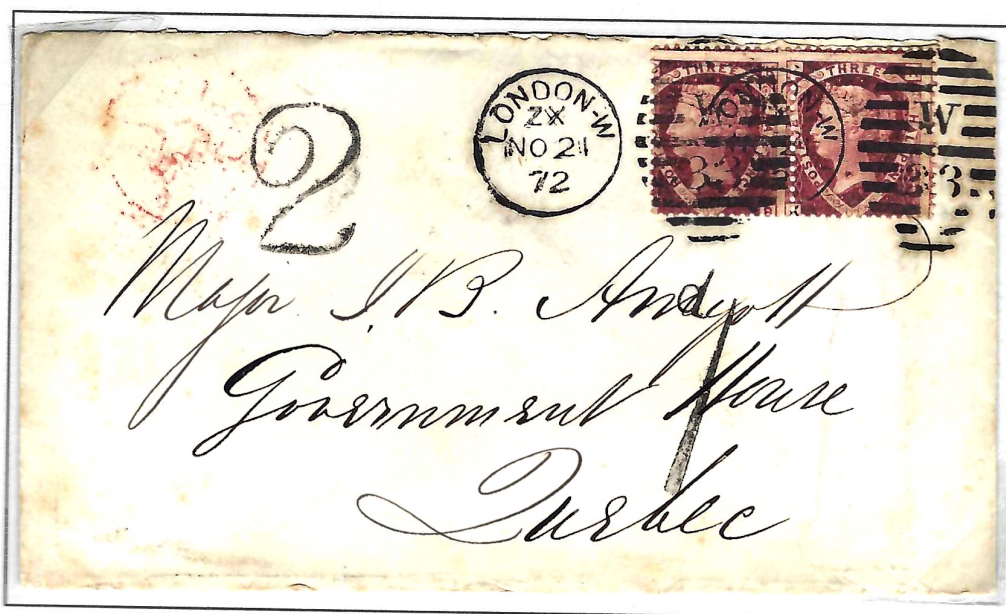 2
LONDON-W
ZX
NO 21
72
THREE
THREE
LONDON-W
W
3
Major I. B. Amyott
1d
Government House
Quebec